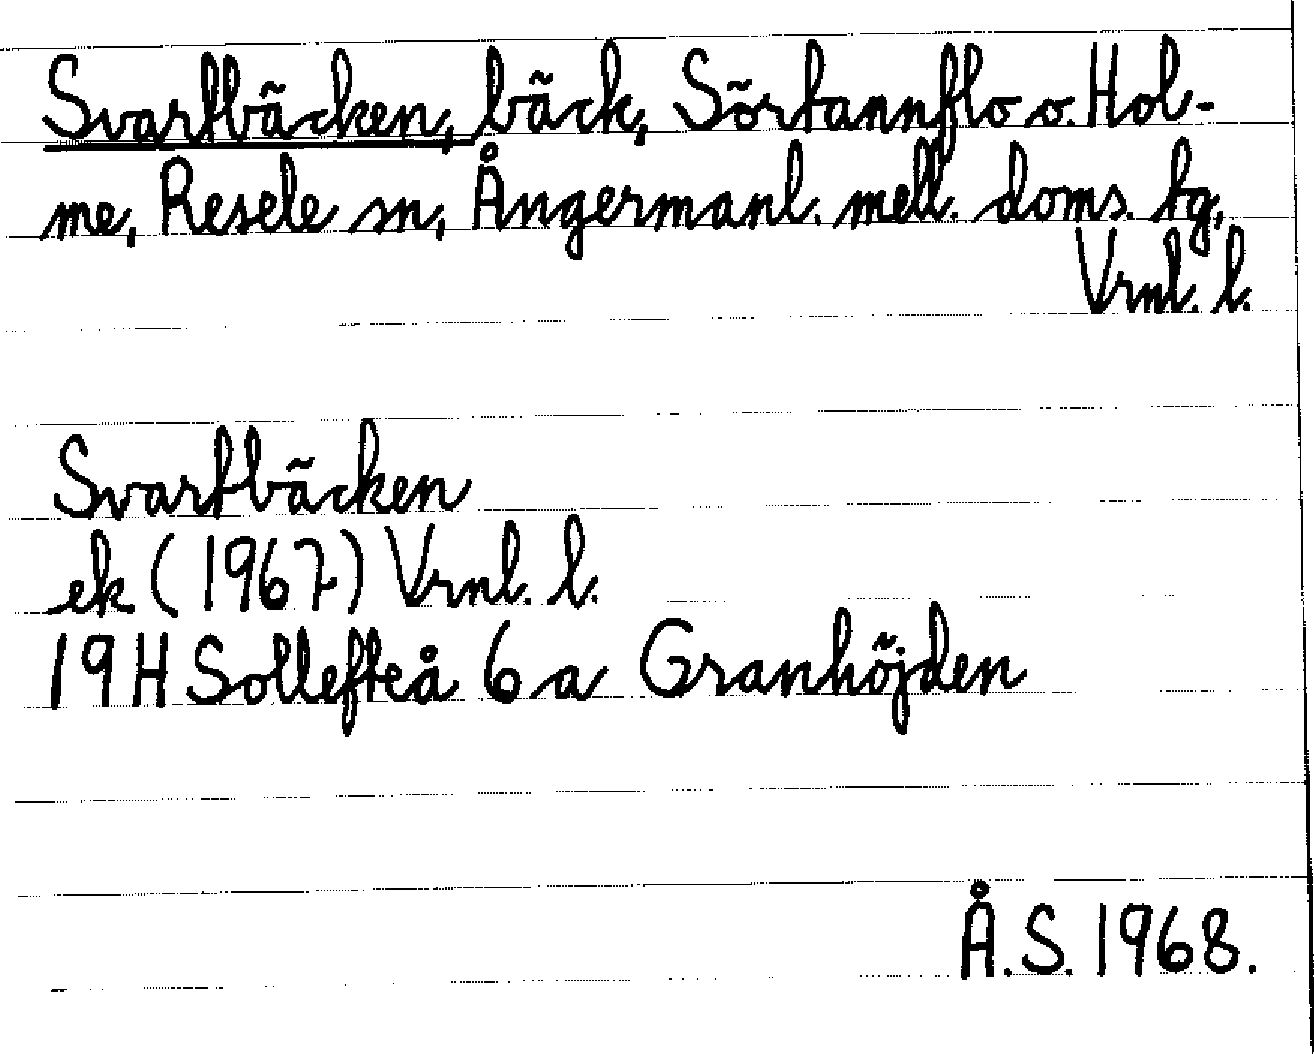 Svartbäcken, bäck, Sörtannflo o. Hol-
me, Resele sn, Ångermanl. mell. doms. tg,
Vrnl. l.
Svartbäcken
ek (1967) Vrnl. l.
19H Sollefteå 6a Granhöjden
Å.S. 1968.